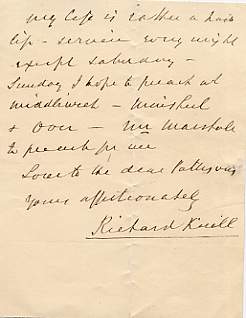 my life is rather a hard
life - service every night
except Saturday -
Sunday I hope to preach at
Middlewich - Minshull
& Over - Mr Marshall
to preach for me
Love to the dear
Yours affectionately
Richard Knill